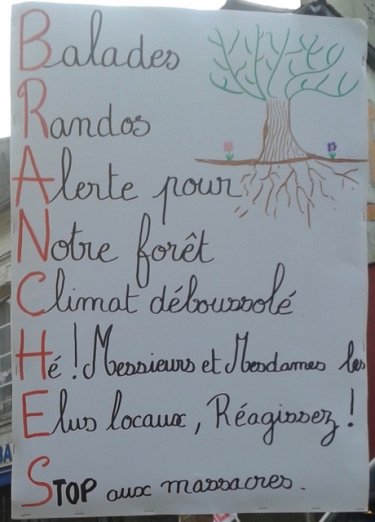 Balades
Randos
Alerte pour
Notre forêt
Climat déboussolé
Hé ! Messieurs et Mesdames les
Elus locaux, Réagissez !
STOP aux massacres.
BA